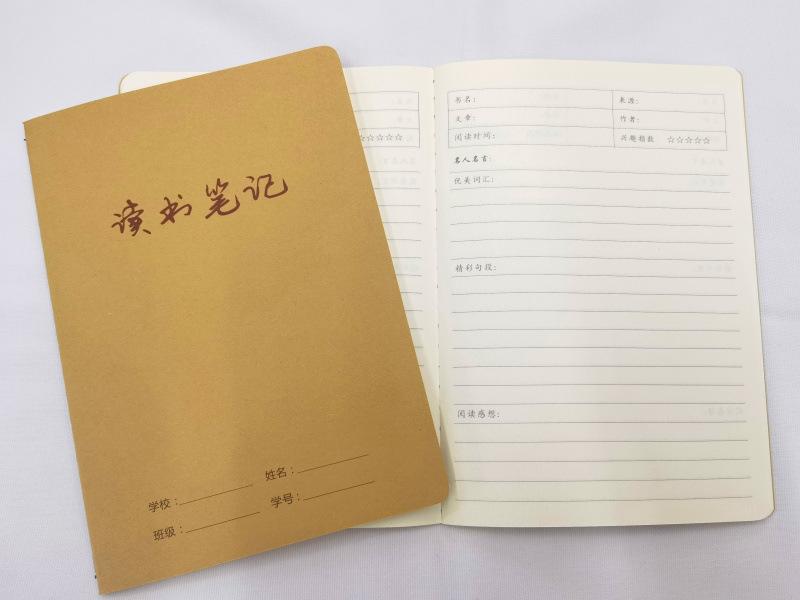 读书笔记
学校：
姓名：
班级：
学号：
☆☆☆☆☆
书名：
来源：
文章：
作者：
阅读时间：
兴趣指数 ☆☆☆☆☆
名人名言：
优美词汇：
精彩句段：
阅读感想：